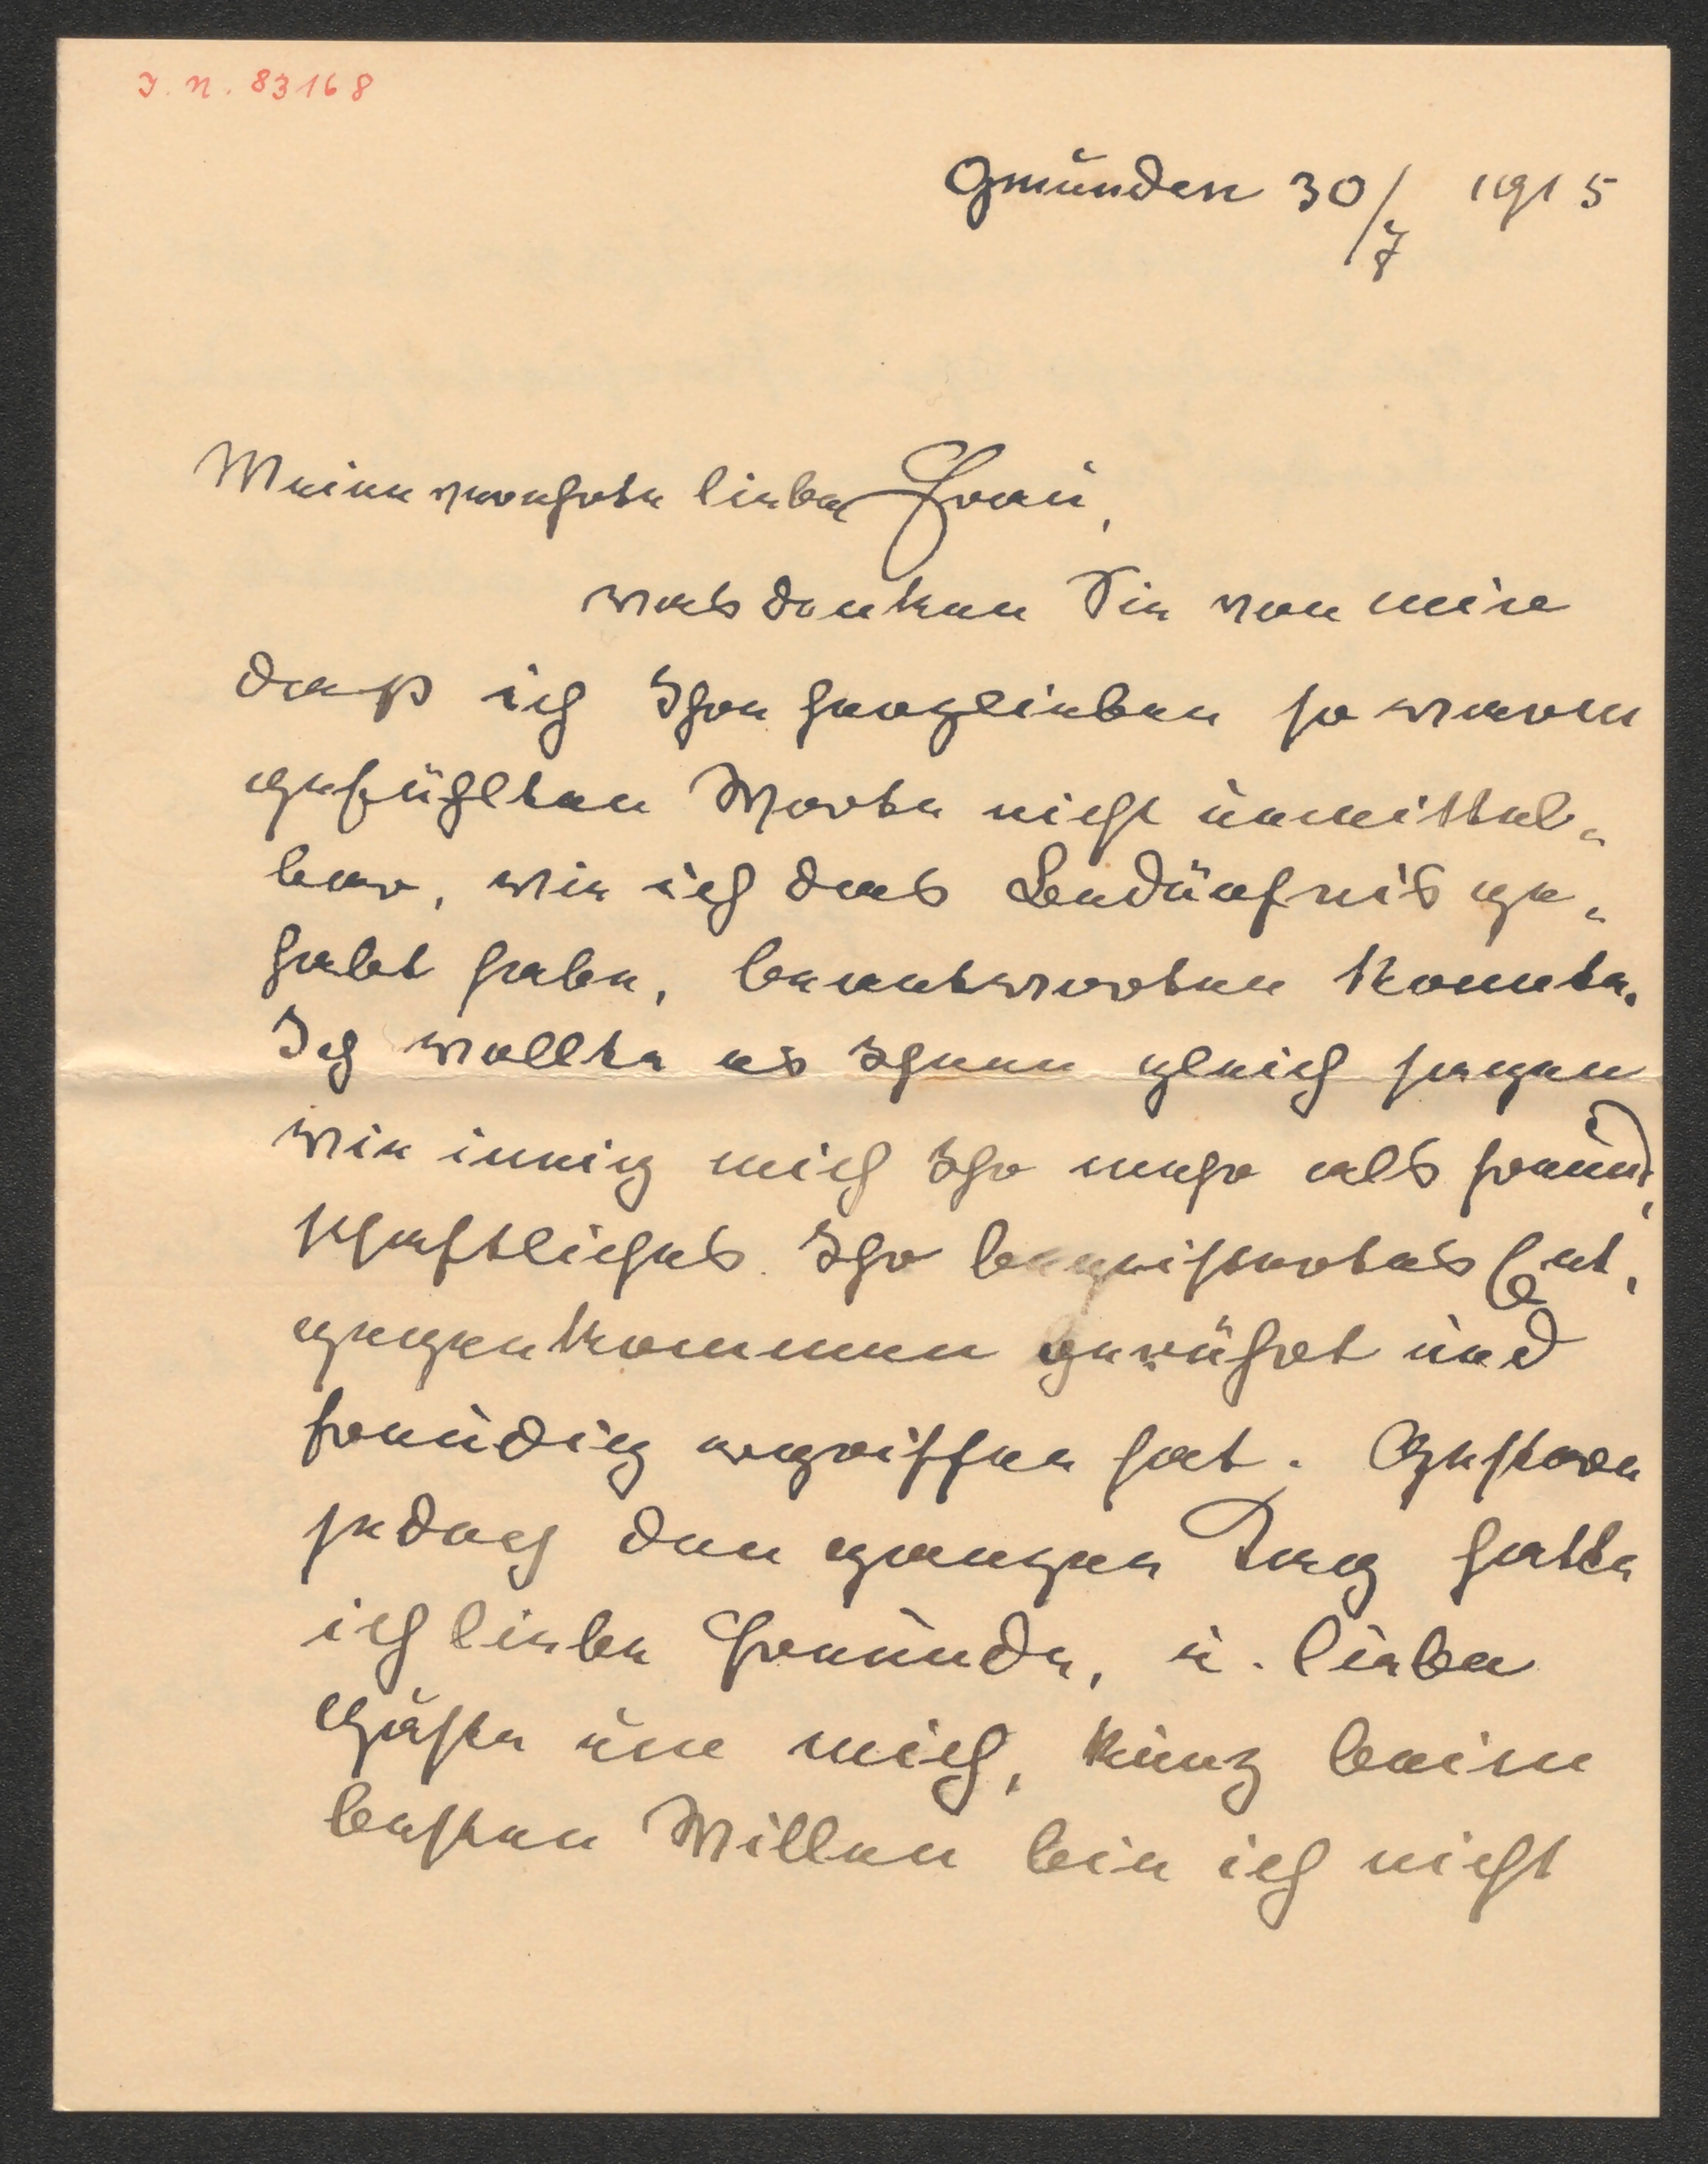 I. N. 83168
Gmunden 30/7 1915
Meine verehrte liebe Frau,
was denken Sie von mir
daß ich Ihre herzlieben so warm
gefühlten Worte nicht unmittel-
bar, wie ich das Bedürfnis ge-
habt habe, beantworten konnte.
Ich wollte es Ihnen gleich sagen
wie innig mich Ihr mehr als freund-
schaftliches Ihr begeistertes Ent-
gegenkommen gerührt und
freudig ergriffen hat. Gestern
jedoch den ganzen Tag hatte
ich liebe Freunde, u. liebe
Gäste um mich, kurz beim
besten Willen bin ich nicht